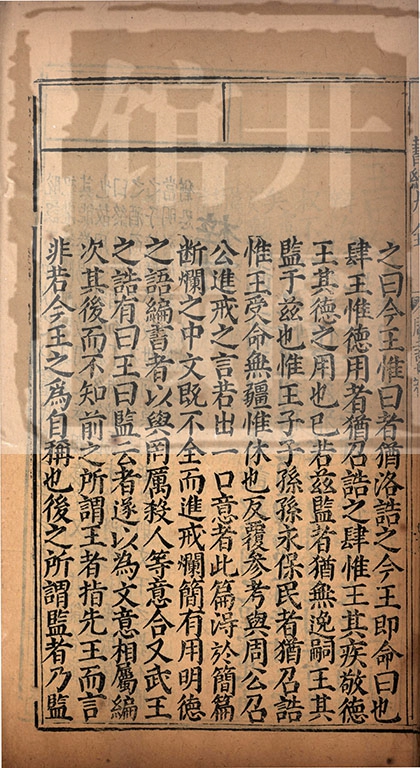 之曰今王惟曰者猶洛誥之今王即命曰也
肆王惟德用者猶召誥之肆惟王其疾敬德
王其德之用也已若兹監者猶無逸嗣王其
監于兹也惟王子子孫孫永保民者猶召誥
惟王受命無疆惟休也反覆參考與周公召
公進戒之言若出一口意者此篇得於簡篇
断爛之中文既不全而進戒爛簡有用明德
之語編書者以與罔厲殺人等意合又武王
之誥有曰王曰監云者遂以為文意相屬編
次其後而不知前之所謂王者指先王而言
非若今王之為自稱也後之所謂監者乃監